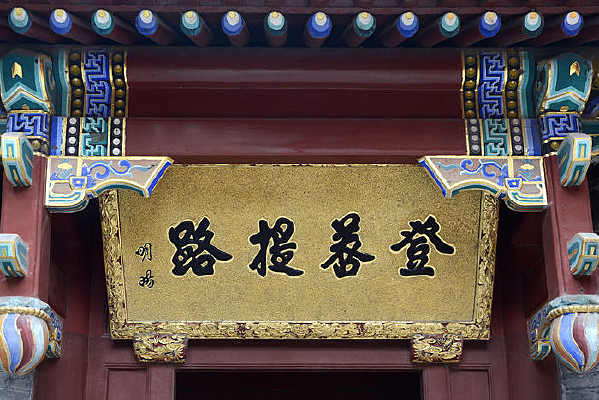 登菩提路
明暘